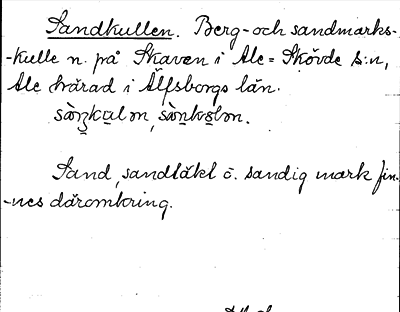 Sandkullen. Berg- och sandmarks-
-kulle n. på Skaven i Ale-Skövde s:n,
Ale härad i Älfsborgs län.
Sand, sandtäkt o. sandig mark fin-
-nes däromkring.